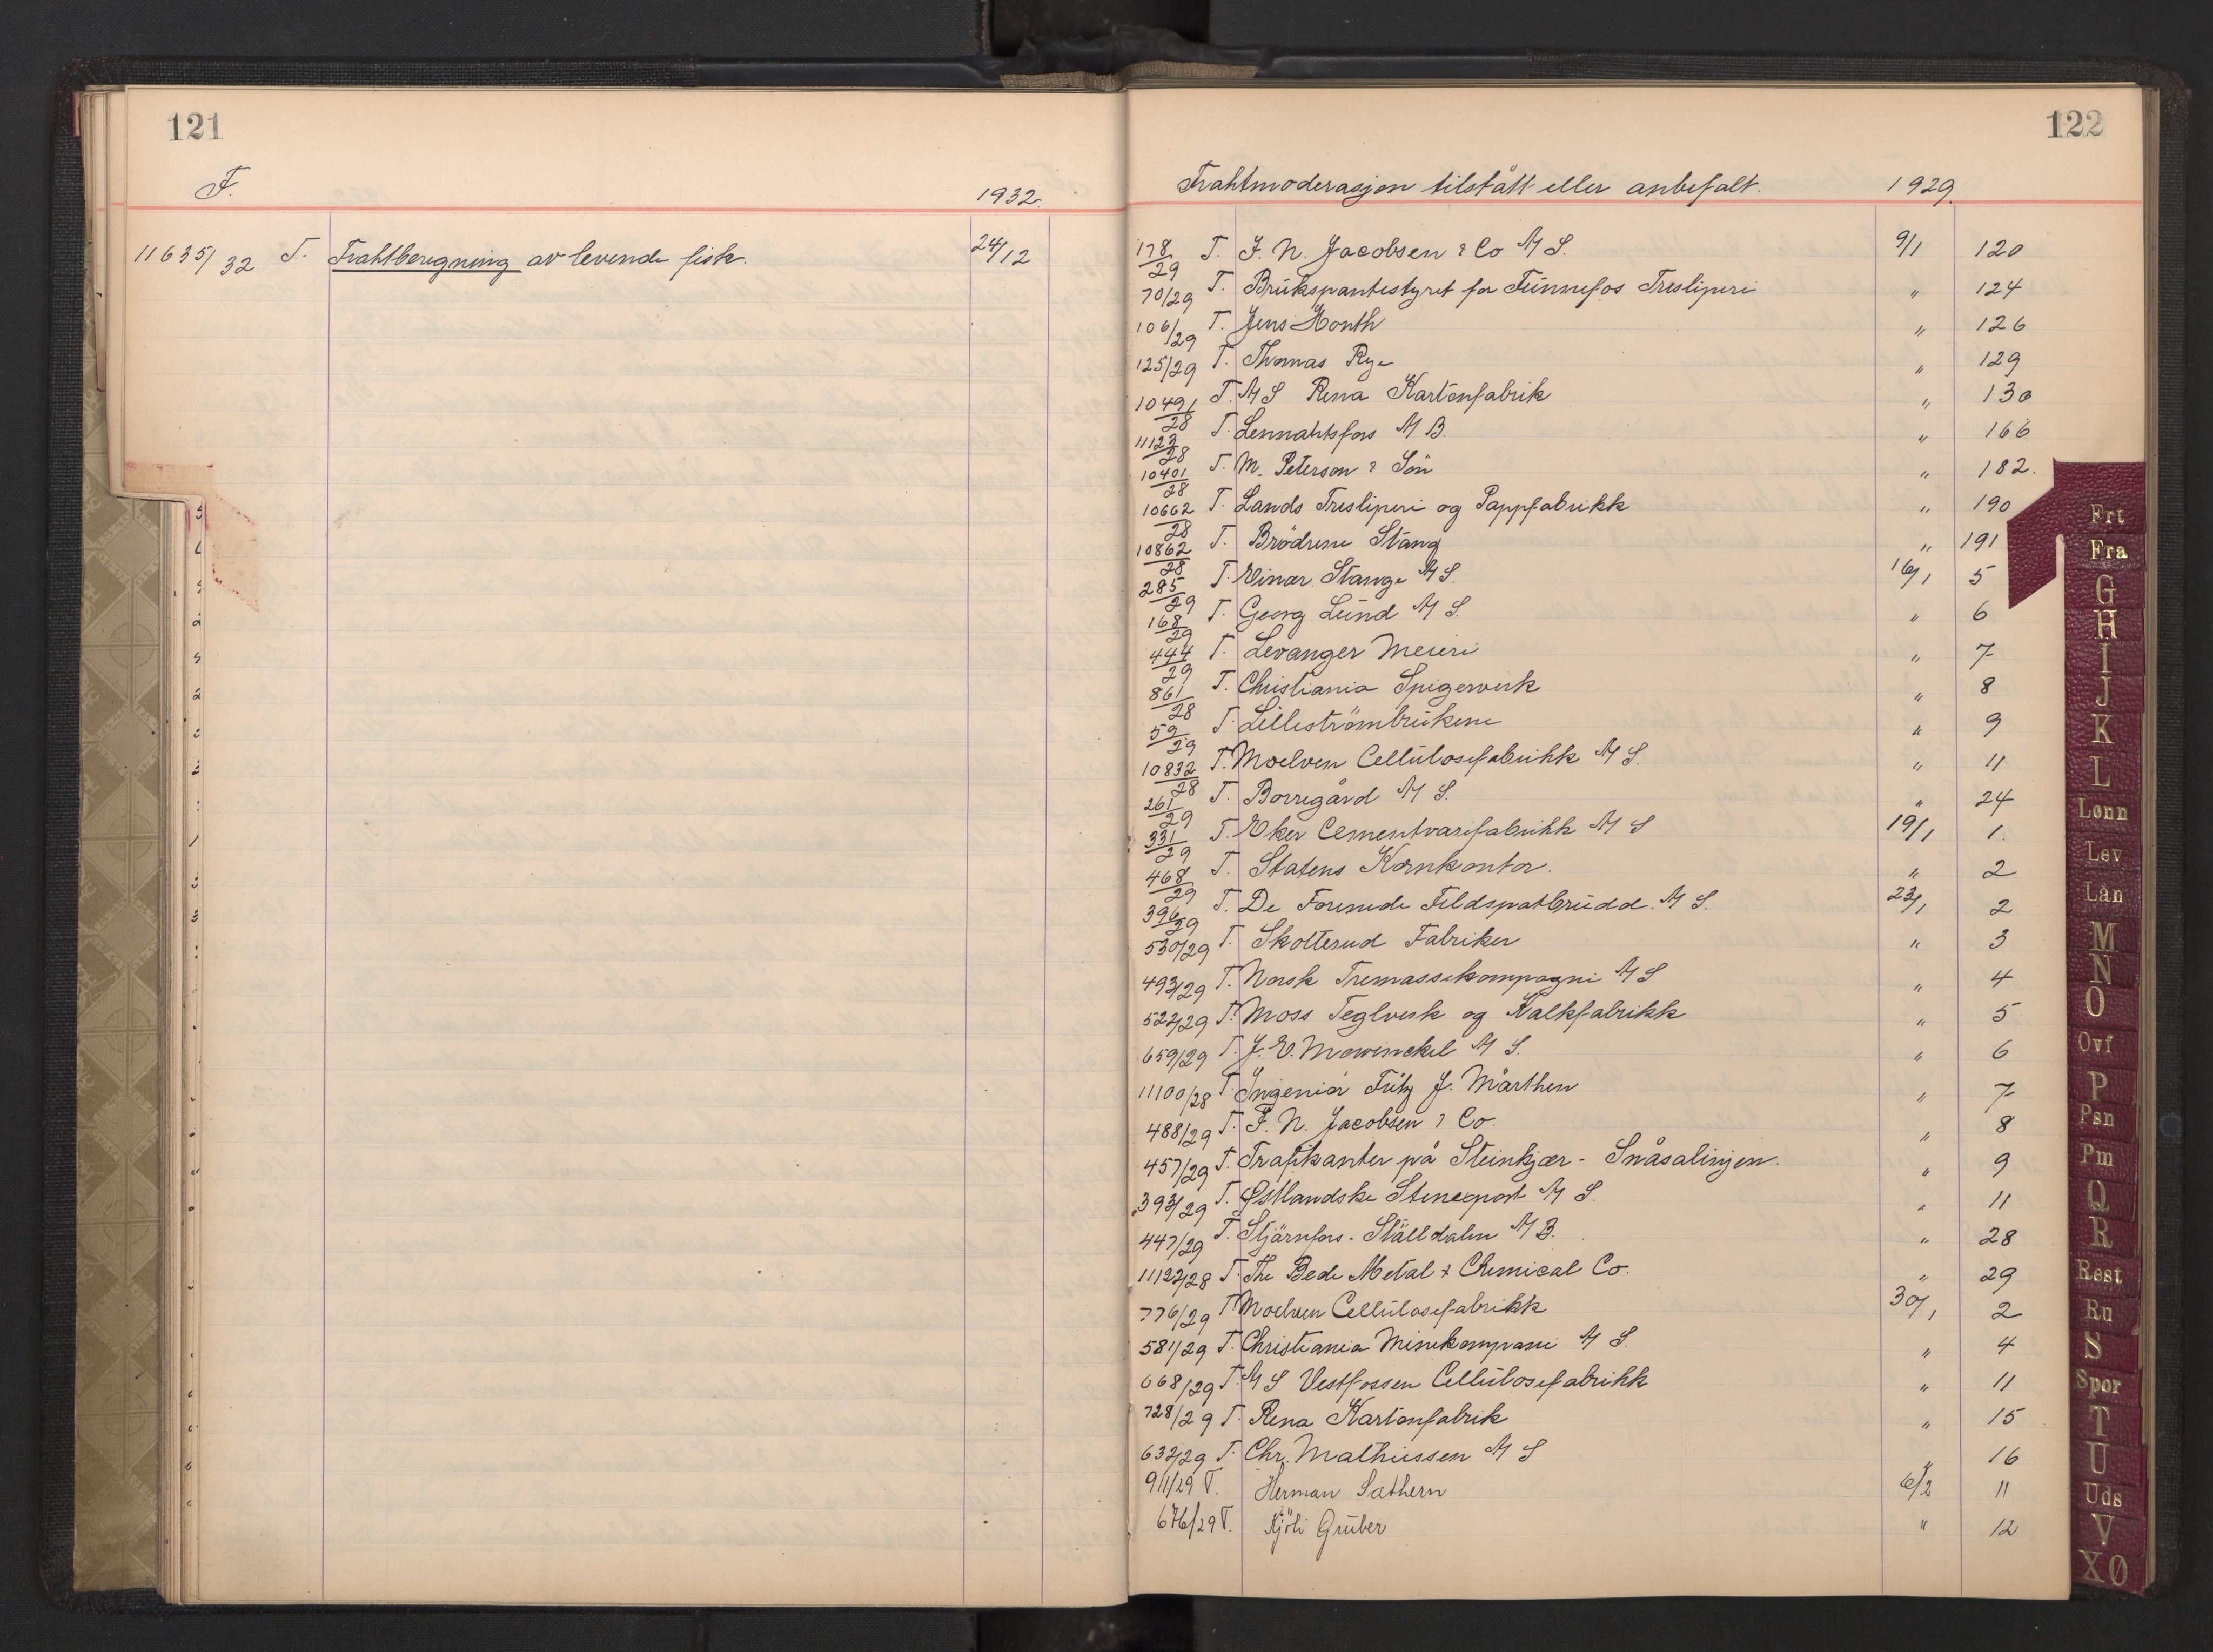 121
F.
1932.
11635/32 T. Frahtberegning av levende fisk. 24/12
122
Frahtmoderasjon tilstått eller anbefalt. 1929.
178/29 T. F. N. Jacobsen & Co A/S. 9/1 120
70/29 T. Brukspantestyret for Funnefos Tresliperi " 124
106/29 T. Jens Honth " 126
125/29 T. Thomas Rye " 129
10491/28 T. A/S Rena Kartonfabrik " 130
11123/28 T. Lennahtsfors A/B. " 166
10401/28 T. M. Peterson & Sön " 182.
10662/28 T. Lands Tresliperi og Pappfabrikk " 190
10862/28 T. Brödrene Stang " 191
285/29 T. Einar Stange A/S. 16/1 5
168/29 T. Georg Lund A/S. " 6
444/29 T. Levanger Meieri " 7
861/28 T. Christiania Spigerverk " 8
59/29 T. Lilleströmbrukene " 9
10832/28 T. Moelven Cellulosefabrikk A/S. " 11
261/29 T. Borregård A/S. " 24
331/29 T. Eker Cementvarefabrikk A/S 19/1 1.
468/29 T. Statens Kornkontor. " 2
396/29 T. De Forenede Feldspatbrudd. A/S. 23/1 2
530/29 T. Skotterud Fabriker " 3
493/29 T. Norsk Tremassekompagni A/S " 4
522/29 T. Moss Teglverk og Kalkfabrikk " 5
659/29 T. J. E. Mowinckel A/S. " 6
11100/28 T. Ingeniør Fritz J. Mårthen " 7
488/29 T. F. N. Jacobsen & Co. " 8
457/29 T. Trafikanter på Steinkjær - Snåsalinjen. " 9
393/29 T. Østlandske Stenexport A/S. " 11
447/29 T. Stjärnfors - Ställdalen A/B. " 28
11192/28 T. The Bede Metal & Chemical Co. " 29
776/29 T. Moelven Cellulosefabrikk 30/1 2
581/29 T. Christiania Minekompani A/S. " 4
668/29 T. A/S Vestfossen Cellulosefabrikk " 11
728/29 T. Rena Kartonfabrik " 15
632/29 T. Chr. Mathiessen A/S " 16
911/29 T. Herman Sathern 6/2 11
676/29 T. Kjöli Gruber " 12
Frt
Fra
G
H
I
J
K
L
Lønn
Lev
Lån
M
N
O
Ovf
P
Psn
Pm
Q
R
Rest
Ru
S
Spor
T
U
Uds
V
XØ